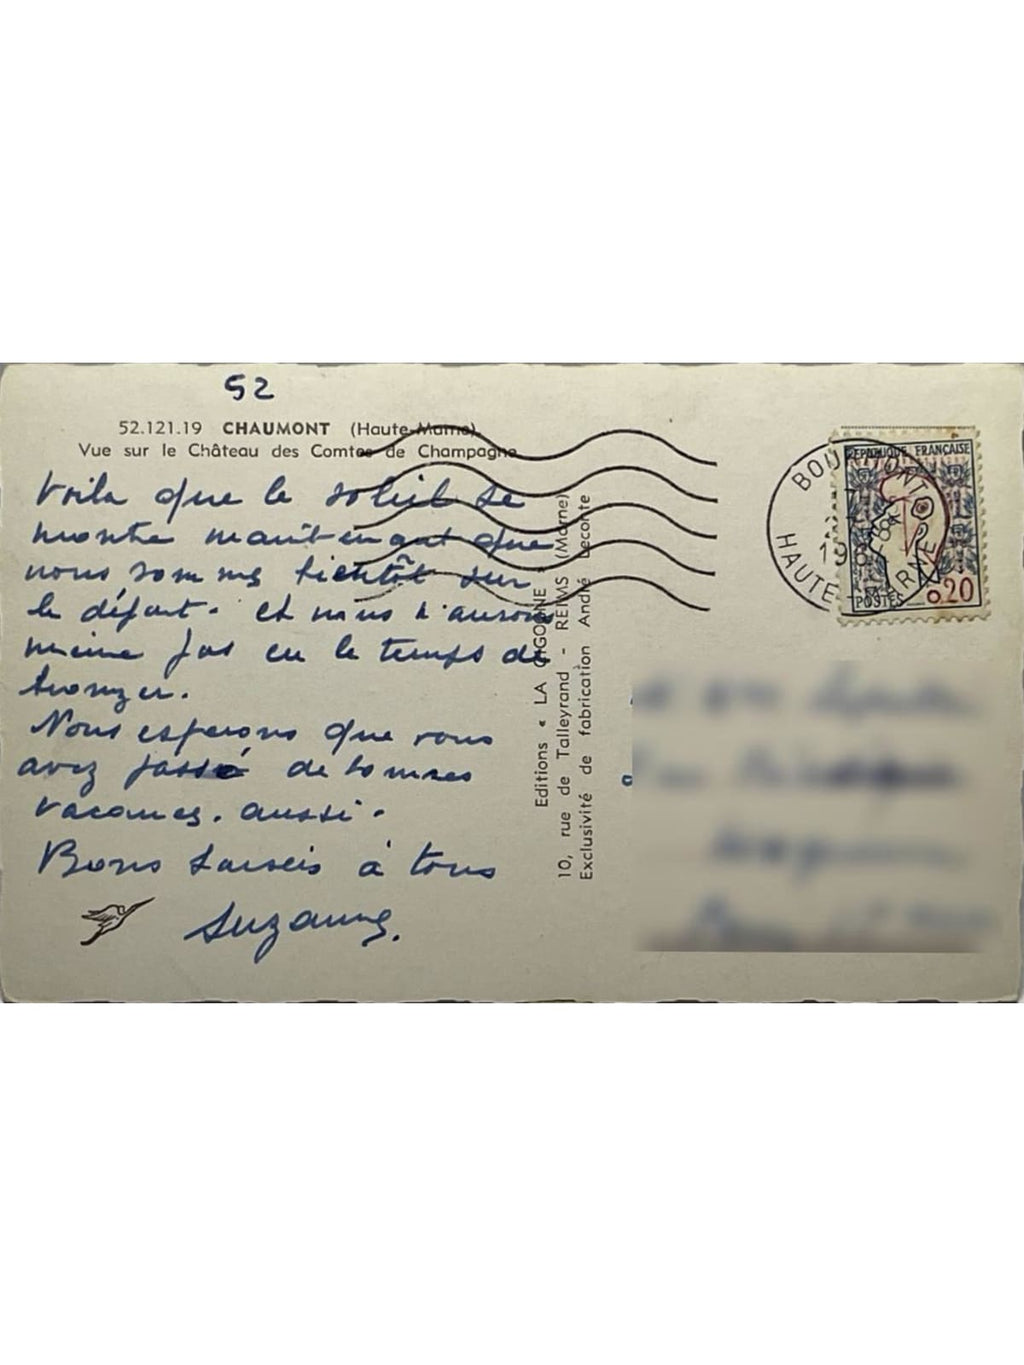 52
52.121.19 CHAUMONT (Haute-Marne)
Vue sur le Château des Comtes de Champagne
Voila que le soleil se
montre maintenant que
nous sommes bientôt sur
le départ. et nous n'aurons
même pas eu le temps de
bronzer.
Nous esperons que vous
avez passé de bonnes
vacances. aussi.
Bons baisers à tous
Suzanne.
Editions « LA CIGOGNE »
10, rue de Talleyrand - REIMS (Marne)
Exclusivité de fabrication André Leconte
REPUBLIQUE FRANÇAISE
POSTES
0,20
HAUTE MARNE